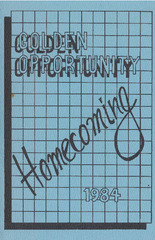 GOLDEN
OPPORTUNITY
Homecoming
1984